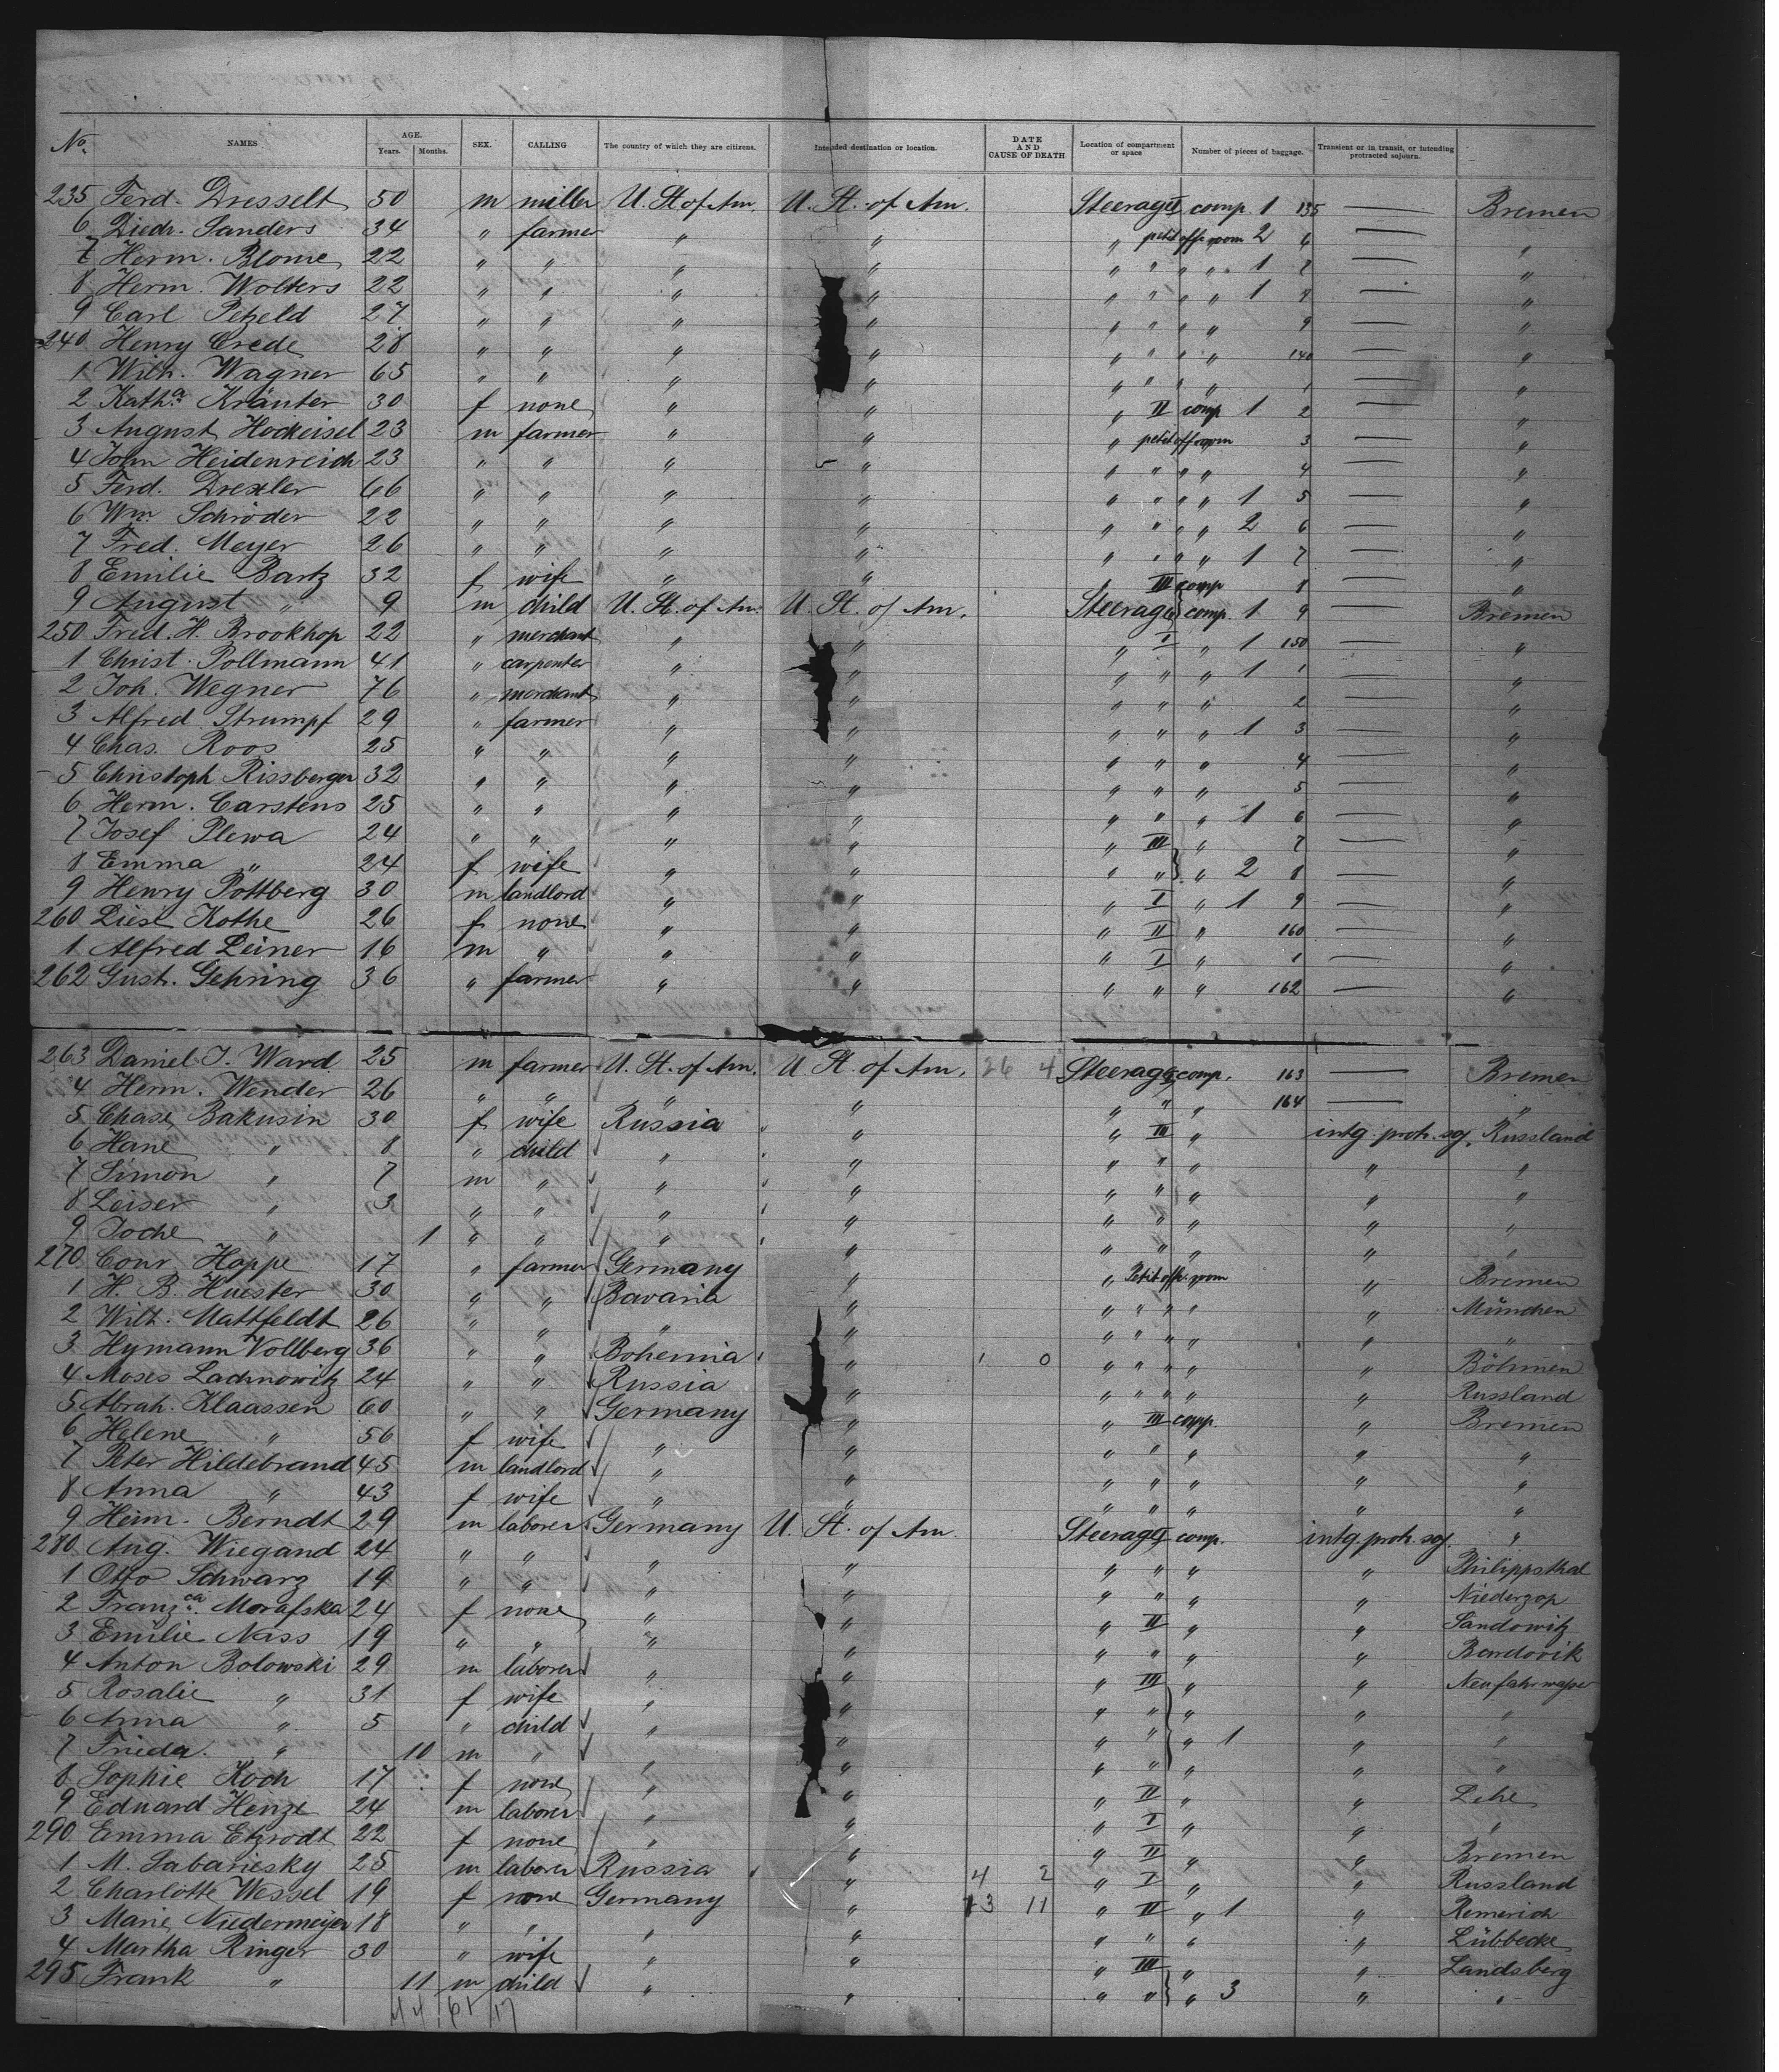 No. NAMES AGE. Years. Months. SEX. CALLING The country of which they are citizens. Intended destination or location. DATE AND CAUSE OF DEATH Location of compartment or space Number of pieces of baggage. Transient or in transit, or intending protracted sojourn.
235 Ferd. Dresselt 50 m miller U. St. of Am. U. St. of Am. Steerage I comp. 1 135 — Bremen
6 Diedr. Sanders 34 " farmer " " " petit off. room 2 6 — "
7 Herm. Blome 22 " " " " " " " " 1 7 — "
8 Herm. Wolters 22 " " " " " " " " 1 8 — "
9 Carl Petzeld 27 " " " " " " " " 9 — "
240 Henry Crede 28 " " " " " " " " 140 — "
1 Wilh. Wagner 65 " " " " " " " " 1 — "
2 Katha. Kräuter 30 f none " " " II comp 1 2 — "
3 August Hockeisel 23 m farmer " " " petit off room 3 — "
4 John Heidenreich 23 " " " " " " " " 4 — "
5 Ferd. Drexler 66 " " " " " " " " 1 5 — "
6 Wm. Schröder 22 " " " " " " " " 2 6 — "
7 Fred. Meyer 26 " " " " " " " " 1 7 — "
8 Emilie Bartz 32 f wife " " III comp 8 — "
9 August " 9 m child U. St. of Am. U. St. of Am. Steerage comp. 1 9 Bremen
250 Fred. H. Brookhop 22 " merchant " " " I " 1 150 — "
1 Christ. Pollmann 41 " carpenter " " " " " 1 1 — "
2 Joh. Wegner 76 " merchant " " " " " 2 — "
3 Alfred Strumpf 29 " farmer " " " " " 1 3 — "
4 Chas. Roos 25 " " " " " " " 4 — "
5 Christoph Rissberger 32 " " " " " " " 5 — "
6 Herm. Carstens 25 " " " " " " " 1 6 — "
7 Josef Plewa 24 " " " " " III " 7 — "
8 Emma " 24 f wife " " " " " 2 8 — "
9 Henry Pottberg 30 m landlord " " " I " 1 9 — "
260 Liesl Kothe 26 f none " " " II " 160 — "
1 Alfred Leiner 16 m " " " " I " 1 — "
262 Gust. Gehring 36 " farmer " " " " " 162 — "
263 Daniel J. Ward 25 m farmer U. St. of Am. U St. of Am. 26 4 Steerage comp. 163 — Bremen
4 Herm. Wender 26 " " " " " " " 164 — "
5 Chase Bakusin 30 f wife Russia " " III " intg. protr. soj. Russland
6 Hane " 8 " child " " " " " " "
7 Simon " 7 m " " " " " " " "
8 Leiser " 3 " " " " " " " " "
9 Joche " 1 " " " " " " " " "
270 Conr. Hoppe 17 " farmer Germany " " Petit off. room " Bremen
1 H. B. Huester 30 " " Bavaria " " " " " " München
2 Wilh. Mattfeldt 26 " " " " " " " " " "
3 Hymann Vollberg 36 " " Bohemia " 1 0 " " " " " Böhmen
4 Moses Lachnowitz 24 " " Russia " " " " " " Russland
5 Abrah. Klaassen 60 " " Germany " " III comp. " Bremen
6 Helene " 56 f wife " " " " " " "
7 Peter Hildebrand 45 m landlord " " " " " " "
8 Anna " 43 f wife " " " " " " "
9 Heinr. Berndt 29 m laborer Germany U. St. of Am. Steerage I comp. intg. protr. soj. "
280 Aug. Wiegand 24 " " " " " " " " Philippsthal
1 Otto Schwarz 19 " " " " " " " " Niederzop
2 Franzca. Morafska 24 f none " " " II " " Sandowitz
3 Emilie Nass 19 " " " " " " " " Bardovik
4 Anton Bolowski 29 m laborer " " " III " " Neufahrwasser
5 Rosalie " 31 f wife " " " " " " "
6 Anna " 5 " child " " " " " 1 " "
7 Frieda. " 10 m " " " " " " " "
8 Sophie Koch 17 f none " " " II " " Lehe
9 Eduard Henze 24 m laborer " " " I " " "
290 Emma Etzrodt 22 f none " " " II " " Bremen
1 M. Sabariesky 25 m laborer Russia " 4 2 " I " " Russland
2 Charlotte Wessel 19 f none Germany " 13 11 " II " 1 " Remerich
3 Marie Niedermeyer 18 " " " " " " " " Lübbecke
4 Martha Ringer 30 " wife " " " III " " Landsberg
295 Frank " 11 m child " " " " " 3 " "